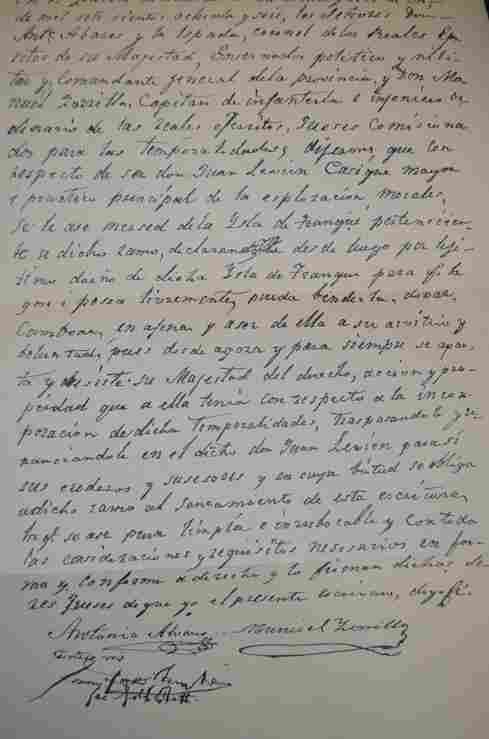 de mil sete sientos ochenta y seis, los señores Don
Antº Abares y la Espada, coronel de los Reales Eger
sitos de su Magestad, Gouernador politico y mili
tar y Comandante general de la provincia, y Don Ma
nuel Zorrilla, Capitan de infanteria e ingeniero or
dinario de los reales ejercitos, Jueses Comisiona
dos para las temporalidades, dijeron, que con
respecto de ser don Juan Levien Casique mayor
e practico principal de la esplorazion, morales,
se le ase mersed de la Isla de Tranque pertenecien
te a dicho ramo, declarandole desde luego por leji
timo dueño de dicha Isla de Tranque para qe la
gose i posea livremente, pueda benderla, donar,
Cambear, en ajenar y aser de ella a su arvitrio y
boluntad, pues desde agora y para siempre se apar
ta y desiste su Magestad del derecho, accion y pro
piedad que a ella tenia con respecto a la incor
porazion de dicha Temporalidades, trasporandole y re
nunciandole en el dicho don Juan Levien para si
sus erederos y susesores y en cuya birtud se obliga
a dicho ramo al saneamiento de esta escritura,
la qe se ase pura limpia e inrebocable y con todas
las casiderazciones y requisitos nesesarios en for
ma y conforme a derecho y lo firman dichos se
ñores Jueses de que yo el presente escrivano, doy fé.
Antonio Abares Manuel Zorrilla